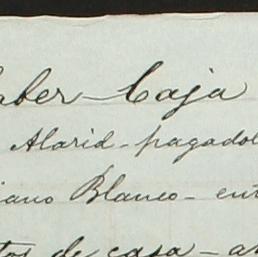 aber Caja
Alarid - pagadol
iano Blanco - ent
tos de casa - a